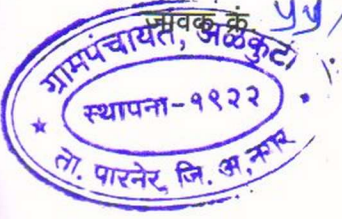 जावक क्रं ५५/
ग्रामपंचायत, अळकुटी
स्थापना-१९२२
ता. पारनेर, जि. अ.नगर